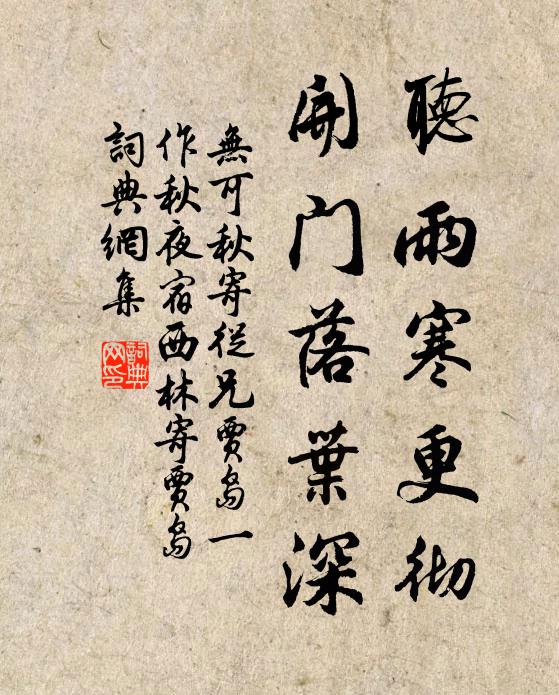 聽雨寒更彻
開門落葉深
無可秋寄從兄賈島一
作秋夜宿西林寄賈島
詞典網集
詞典
网印